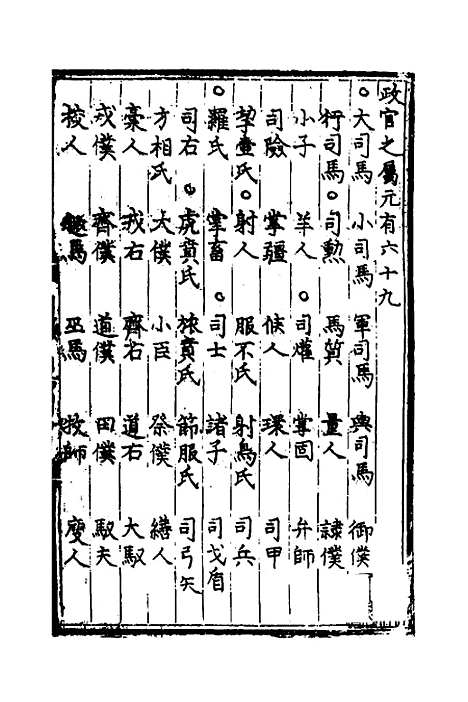 政官之屬元有六十九
○大司馬 小司馬 軍司馬 輿司馬 御僕
行司馬 ○司勲 馬質 量人 隷僕
小子 羊人 ○司爟 掌固 弁師
司險 掌疆 候人 環人 司甲
挈壷氏 ○射人 服不氏 射鳥氏 司兵
○羅氏 掌畜 ○司士 諸子 司戈盾
司右 ○虎賁氏 旅賁氏 節服氏 司弓矢
方相氏 大僕 小臣 祭僕 繕人
稾人 戎右 齊右 道右 大馭
戎僕 齊僕 道僕 田僕 馭夫
挍人 趣馬 巫馬 牧師 廋人